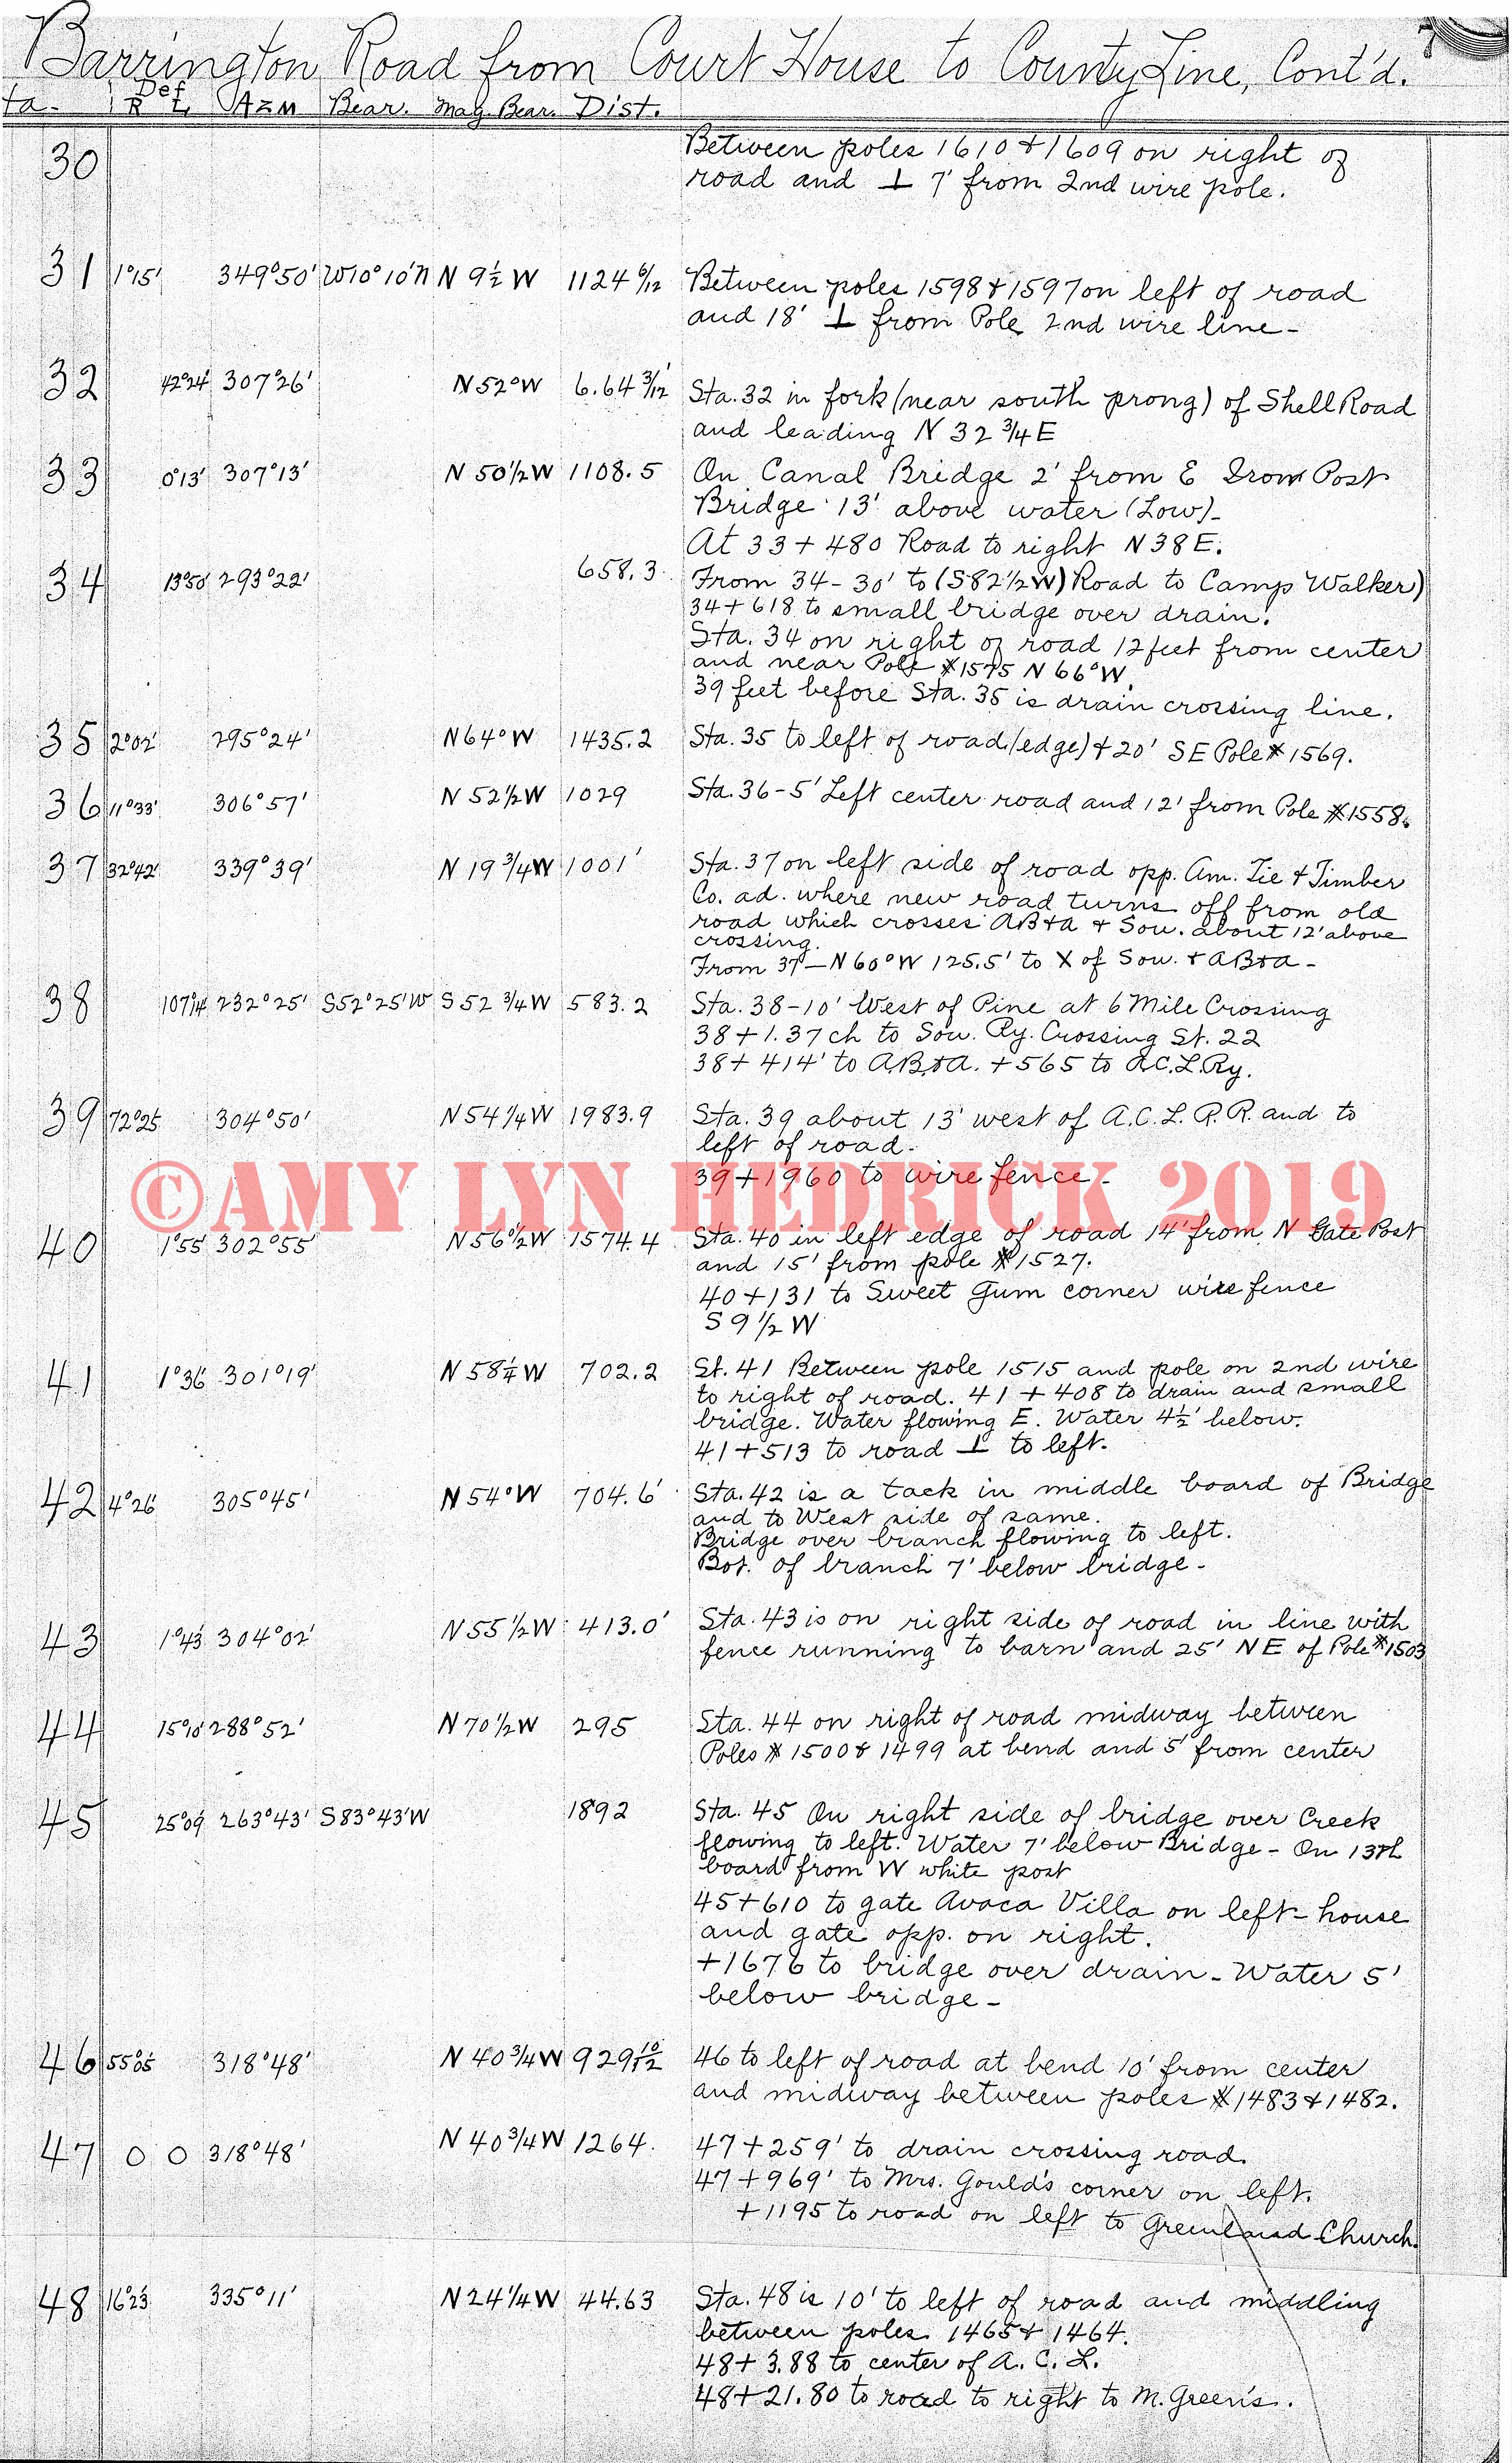 Barrington Road from Court House to County Line, Cont'd. 7
Def
ta. R L AZM Bear. Mag. Bear. Dist.
30 Between poles 1610 & 1609 on right of
road and ⊥ 7' from 2nd wire pole.
31 1°15' 349°50' W10°10'N N 9½ W 1124 6/12 Between poles 1598 & 1597 on left of road
and 18' ⊥ from Pole 2nd wire line-
32 42°24' 307°26' N52°W 6.64 3/12' Sta. 32 in fork (near south prong) of Shell Road
and leading N 32 3/4 E
33 0°13' 307°13' N 50½W 1108.5 On Canal Bridge 2' from E Iron Post
Bridge 13' above water (Low)-
At 33 + 480 Road to right N38E.
34 13°50' 293°22' 658.3 From 34-30' to (S82½W) Road to Camp Walker)
34+618 to small bridge over drain.
Sta. 34 on right of road 12 feet from center
and near Pole #1575 N 66°W.
39 feet before Sta. 35 is drain crossing line.
35 2°02' 295°24' N64°W 1435.2 Sta. 35 to left of road (edge) & 20' SE Pole #1569.
36 11°33' 306°57' N 52½W 1029 Sta. 36-5' Left center road and 12' from Pole #1558.
37 32°42' 339°39' N 19 3/4 W 1001' Sta. 37 on left side of road opp. Am. Tie & Timber
Co. ad. where new road turns off from old
road which crosses AB&A & Sou. about 12' above
crossing.
From 37-N60°W 125.5' to X of Sou. & AB&A-
38 107°14' 232°25' S52°25'W S 52 3/4 W 583.2 Sta. 38-10' West of Pine at 6 Mile Crossing
38+1.37 ch to Sou. Ry. Crossing St. 22
38+414' to A.B.&A. +565 to A.C.L.Ry.
39 72°25' 304°50' N54¼W 1983.9 Sta. 39 about 13' west of A.C.L.R.R. and to
left of road.
39+1960 to wire fence-
©AMY LYN HEDRICK 2019
40 1°55' 302°55' N56½W 1574.4 Sta. 40 in left edge of road 14' from N Gate Post
and 15' from pole #1527.
40+131 to Sweet Gum corner wire fence
S 9½ W
41 1°36' 301°19' N 58¼ W 702.2 St. 41 Between pole 1515 and pole on 2nd wire
to right of road. 41 + 408 to drain and small
bridge. Water flowing E. Water 4½' below.
41+513 to road ⊥ to left.
42 4°26' 305°45' N54°W 704.6' Sta. 42 is a tack in middle board of Bridge
and to West side of same.
Bridge over branch flowing to left.
Bot. of branch 7' below bridge-
43 1°43' 304°02' N55½W 413.0' Sta. 43 is on right side of road in line with
fence running to barn and 25' NE of Pole #1503
44 15°10' 288°52' N70½W 295 Sta. 44 on right of road midway between
Poles # 1500 & 1499 at bend and 5' from center
45 25°09' 263°43' S83°43'W 1892 Sta. 45 On right side of bridge over Creek
flowing to left. Water 7' below Bridge- On 13th
board from W white post
45+610 to gate Avoca Villa on left- house
and gate opp. on right.
+1676 to bridge over drain- Water 5'
below bridge-
46 55°05' 318°48' N 40 3/4 W 929 10/12 46 to left of road at bend 10' from center
and midway between poles #1483 & 1482.
47 0 0 318°48' N 40 3/4 W 1264. 47+259' to drain crossing road.
47+969' to Mrs. Gould's corner on left.
+1195 to road on left to Greenland Church.
48 16°23' 335°11' N24¼W 44.63 Sta. 48 is 10' to left of road and middling
between poles 1465 & 1464.
48+3.88 to center of A.C.L.
48+21.80 to road to right to M. Green's.